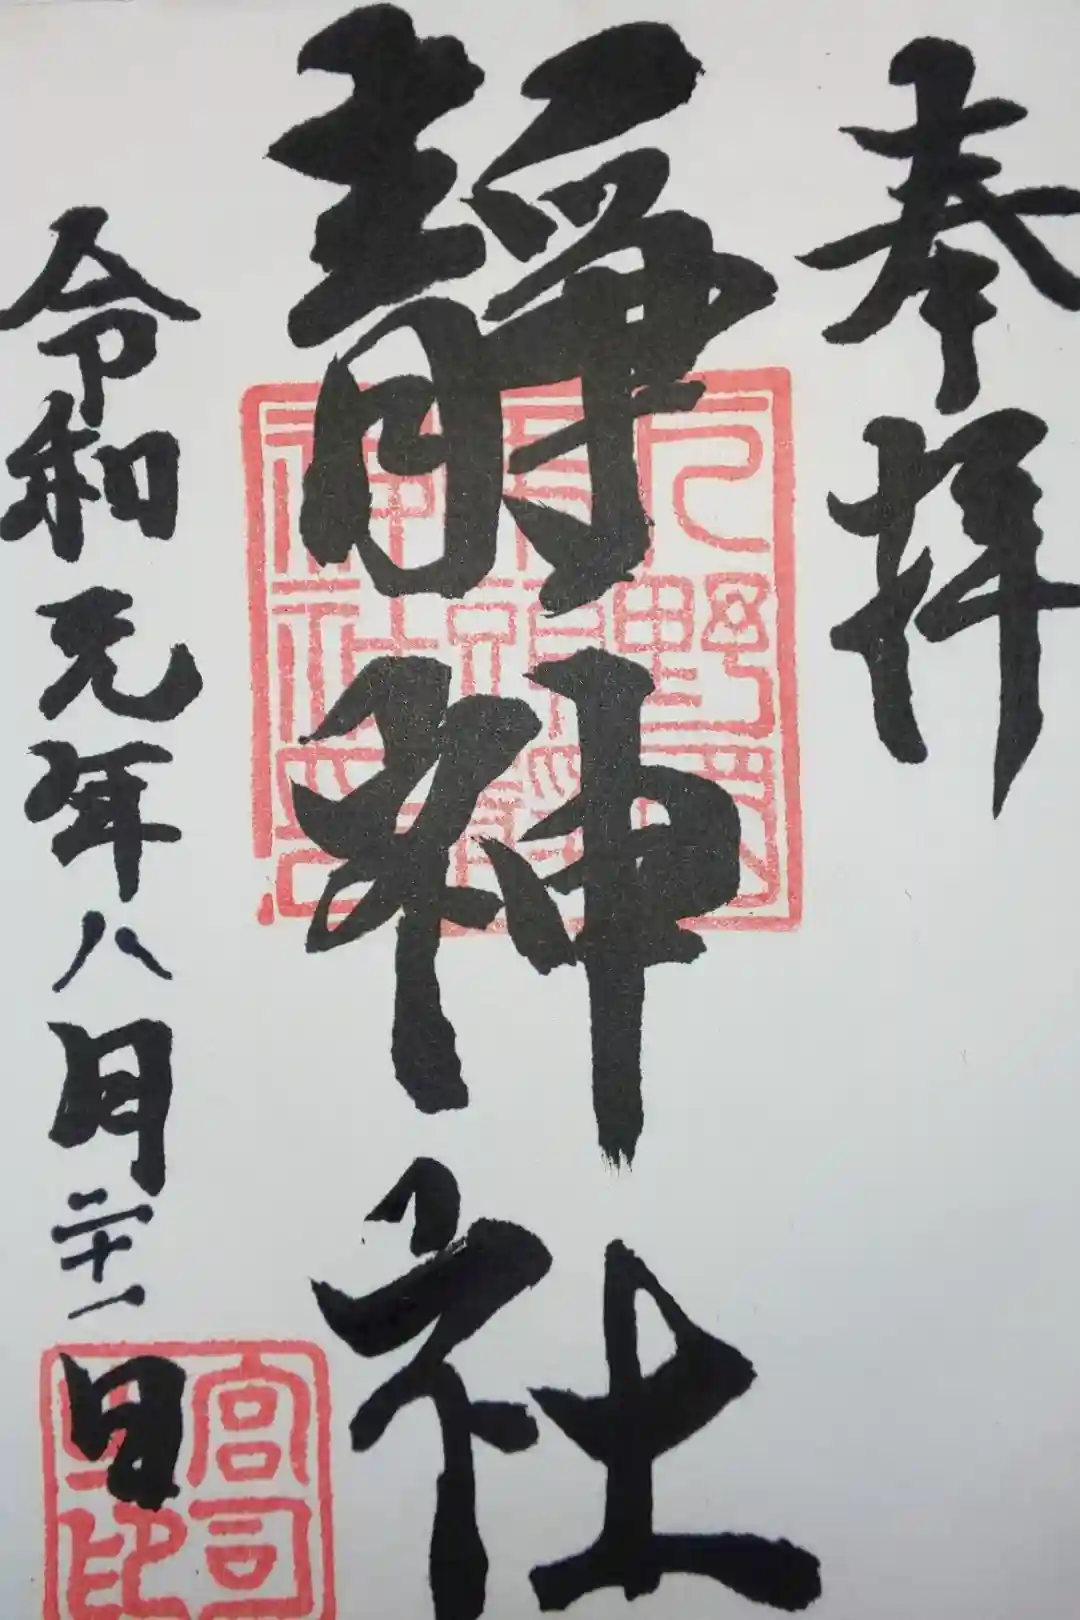 奉拝
靜神社
令和元年八月二十一日
宮司之印